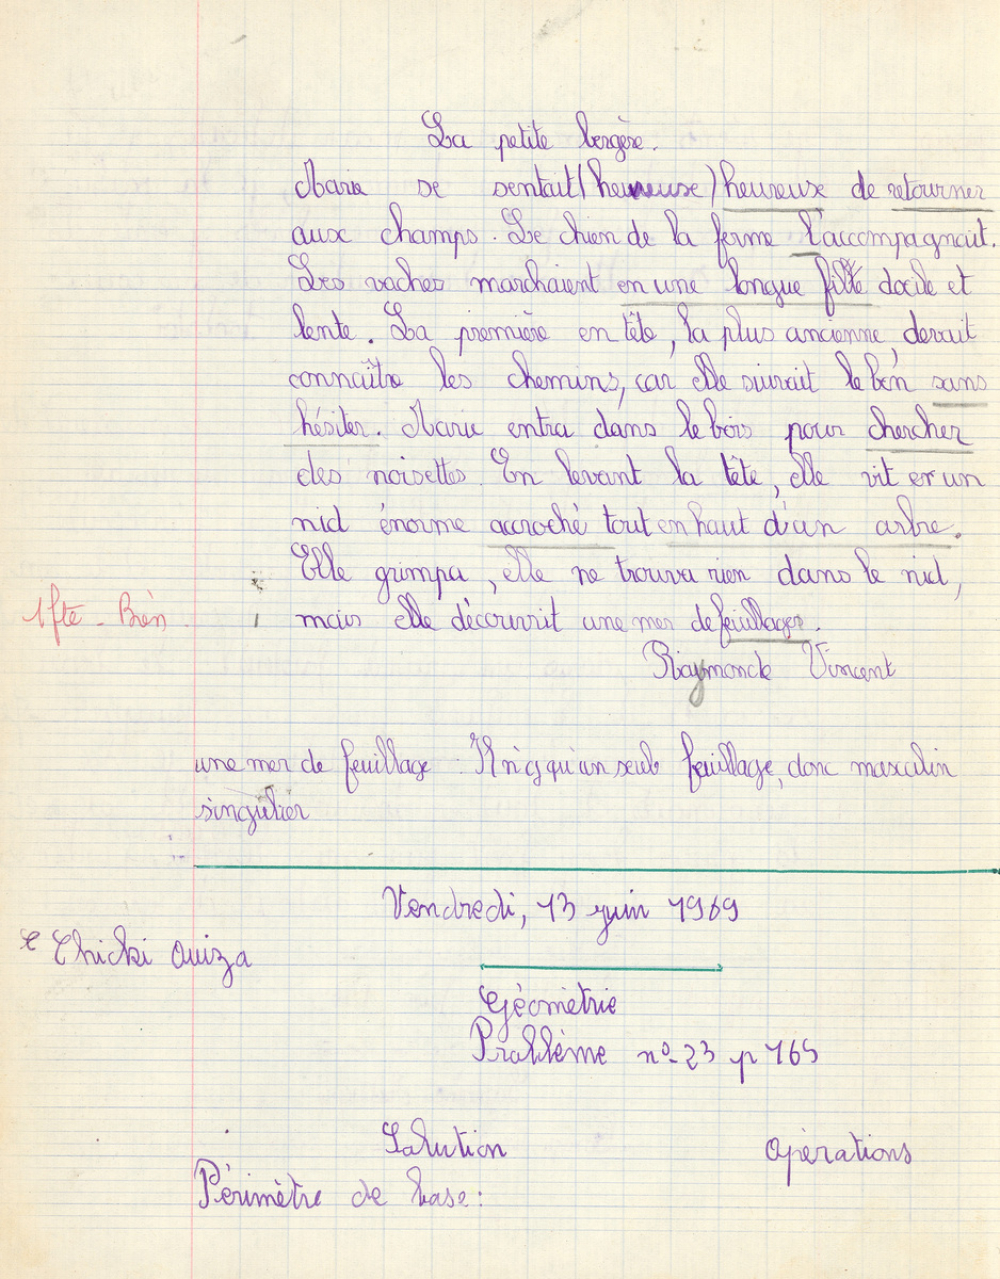 La petite bergère.
Marie se sentait (heureuse) heureuse de retourner
aux champs. Le chien de la ferme l'accompagnait.
Les vaches marchaient en une longue file docile et
lente. La première en tête, la plus ancienne, devait
connaître les chemins, car elle suivait le bon sans
hésiter. Marie entra dans le bois pour chercher
des noisettes. En levant la tête, elle vit un
nid énorme accroché tout en haut d'un arbre.
Elle grimpa, elle ne trouva rien dans le nid,
1 fte - Bien
mais elle découvrit une mer de feuillages.
Raymonde Vincent
une mer de feuillage : Il n'y qu'un seule feuillage, donc masculin
singulier
Vendredi, 13 juin 1969
Ouiza
Géométrie
Problème n° 23 p 165
Solution opérations
Périmètre de base :